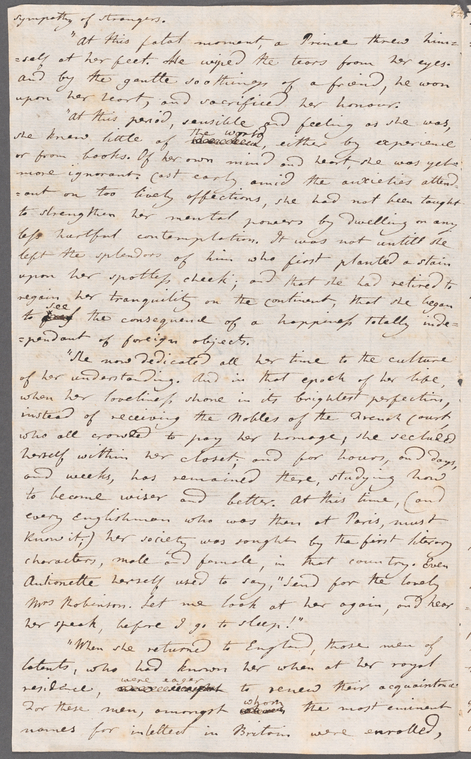 sympathy of strangers.
"At this fatal moment, a Prince threw him=
=self at her feet. He wiped the tears from her eyes.
And by the gentle soothings of a friend, he won
upon her heart, and sacrificed her honour.
"At this period, sensible and feeling as she was,
she knew little of the world, either by experience
or from books. Of her own mind and heart she was yet
more ignorant; cast early amid the anxieties attend-
=ant on too lively affections, she had not been taught
to strengthen her mental powers by dwelling on any
less hurtful contemplation. It was not untill she
left the splendors of him who first planted a stain
upon her spotless cheek; and that she had retired to
regain her tranquility on the continent, that she began
to see the consequence of a happiness totally inde=
=pendant of foreign objects.
"She now dedicated all her time to the culture
of her understanding. And in that epoch of her life,
when her loveliness shone in its brightest perfection,
instead of receiving the Nobles of the French Court,
who all crowded to pay her homage, she secluded
herself within her closet; and for hours, and days,
and weeks, has remained there, studying how
to become wiser and better. At this time, (and
every Englishman who was then at Paris, must
know it,) her society was sought by the first literary
characters, male and female, in that country. Even
Antonette herself used to say, "Send for the lovely
Mrs Robinson. Let me look at her again, and hear
her speak, before I go to sleep!"
"When she returned to England, those men of
talents, who had known her when at her royal
residence, were eager to renew their acquaintance
For these men, amongst whom the most eminent
names for intellect in Britain were enrolled,